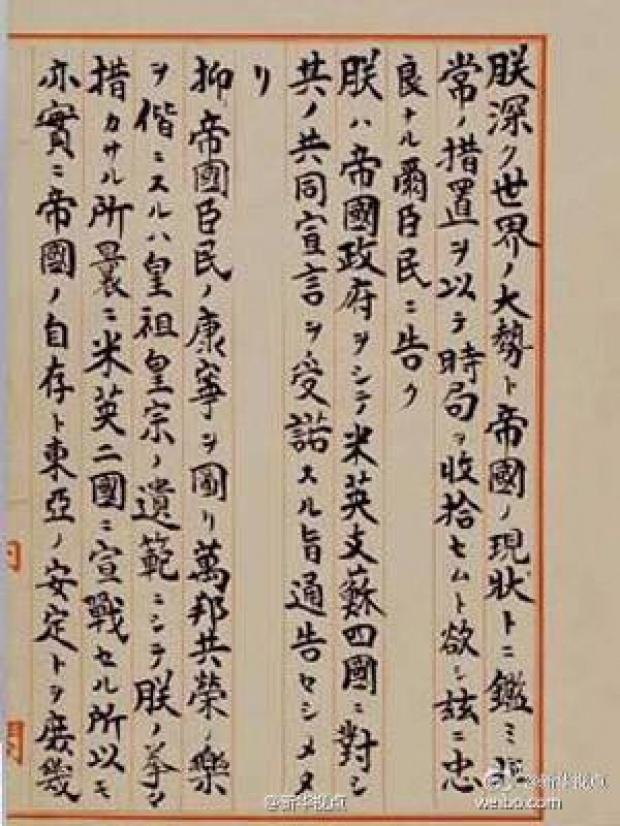 朕深ク世界ノ大勢ト帝國ノ現狀トニ鑑ミ非
常ノ措置ヲ以テ時局ヲ收拾セムト欲シ玆ニ忠
良ナル爾臣民ニ告ク
朕ハ帝國政府ヲシテ米英支蘇四國ニ對シ
其ノ共同宣言ヲ受諾スル旨通告セシメタ
リ
抑帝國臣民ノ康寧ヲ圖リ萬邦共榮ノ樂
ヲ偕ニスルハ皇祖皇宗ノ遺範ニシテ朕ノ拳々
措カサル所曩ニ米英二國ニ宣戰セル所以モ
亦實ニ帝國ノ自存ト東亞ノ安定トヲ庶幾
内
閣
@新华视点
@新华视点
weibo.com